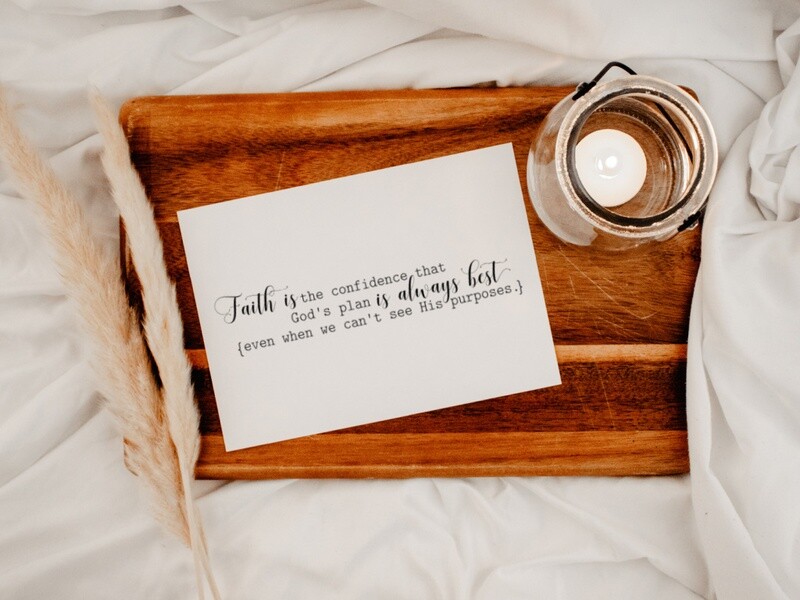 Faith is the confidence that
God's plan is always best
{even when we can't see His purposes.}